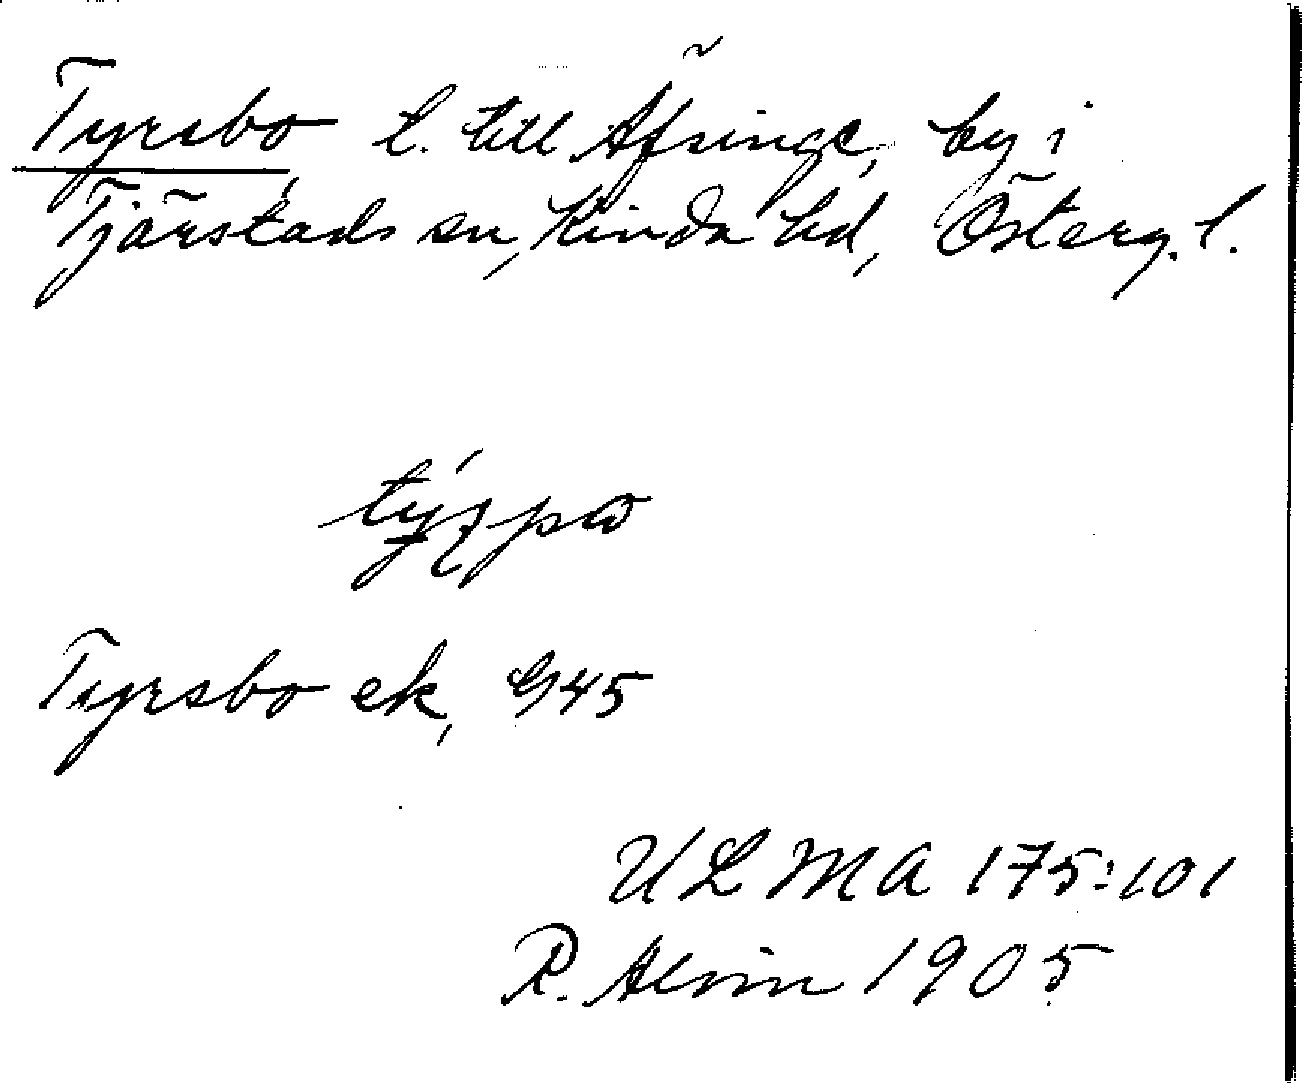 Tyrsbo, l. till Äfsinge, by i
Tjärstads sn, Kinda hd, Österg. l.
Tyrsbo ek, 945
ULMA 175:101
R. Alvin 1905